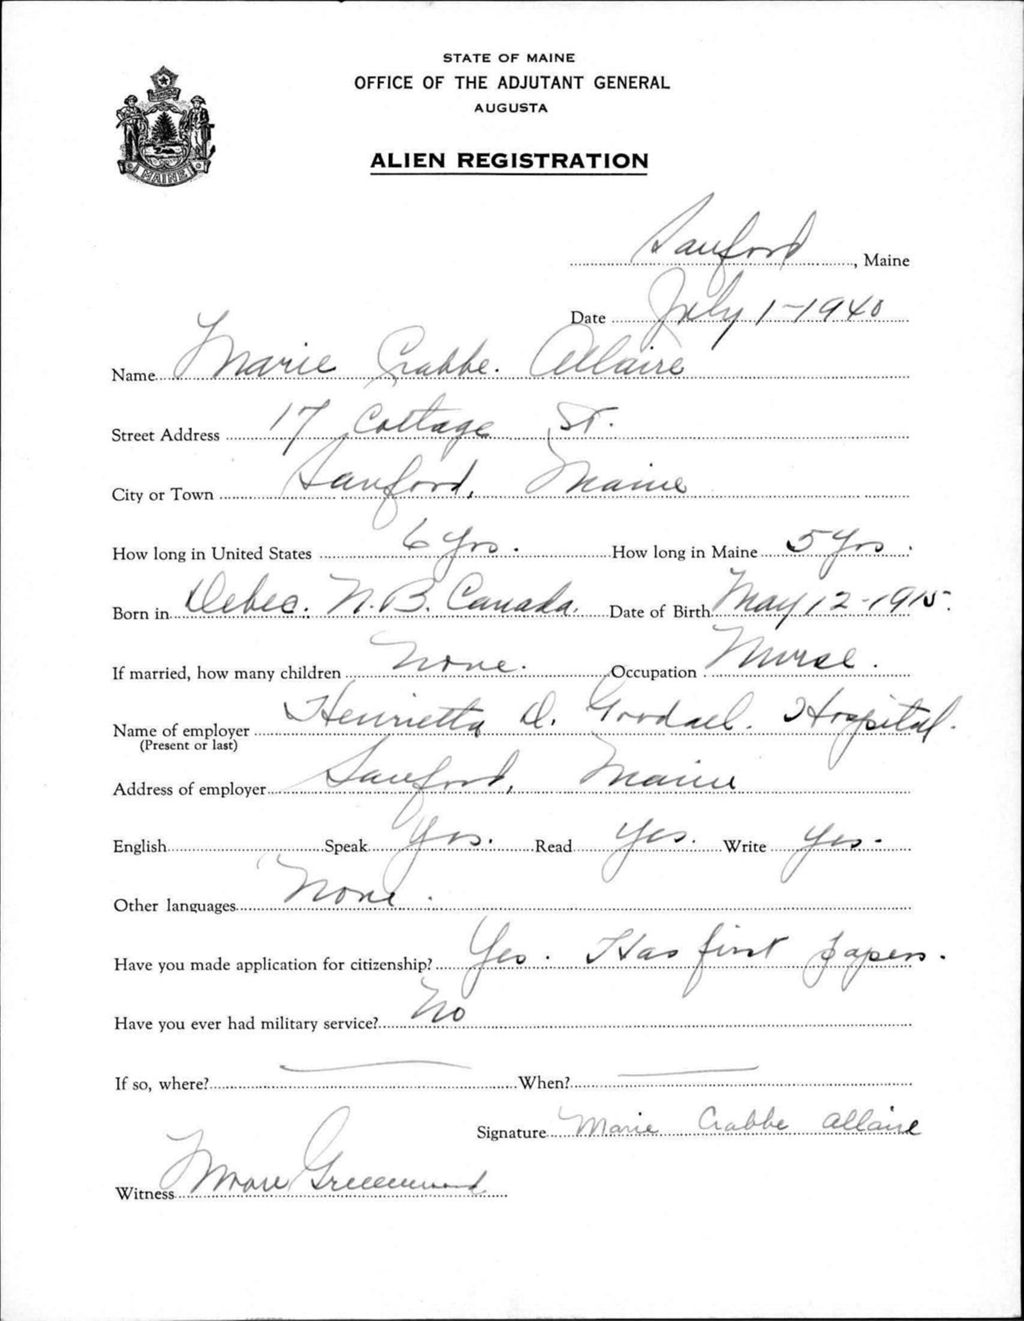 STATE OF MAINE
OFFICE OF THE ADJUTANT GENERAL
AUGUSTA
ALIEN REGISTRATION
Sanford, Maine
Date July 1-1940
Name Marie Crabbe. Allaire
Street Address 17 Cottage St.
City or Town Sanford, Maine
How long in United States 6 Yrs. How long in Maine 5 Yrs.
Born in Debec. N.B. Canada. Date of Birth May 12-1915.
If married, how many children None. Occupation Nurse.
Name of employer Henrietta D. Goodall. Hospital.
(Present or last)
Address of employer Sanford, Maine
English Speak Yes. Read Yes. Write Yes.
Other languages None.
Have you made application for citizenship? Yes. Has first papers.
Have you ever had military service? No
If so, where? — When? —
Signature Marie Crabbe Allaire
Witness Greenwood
MAINE